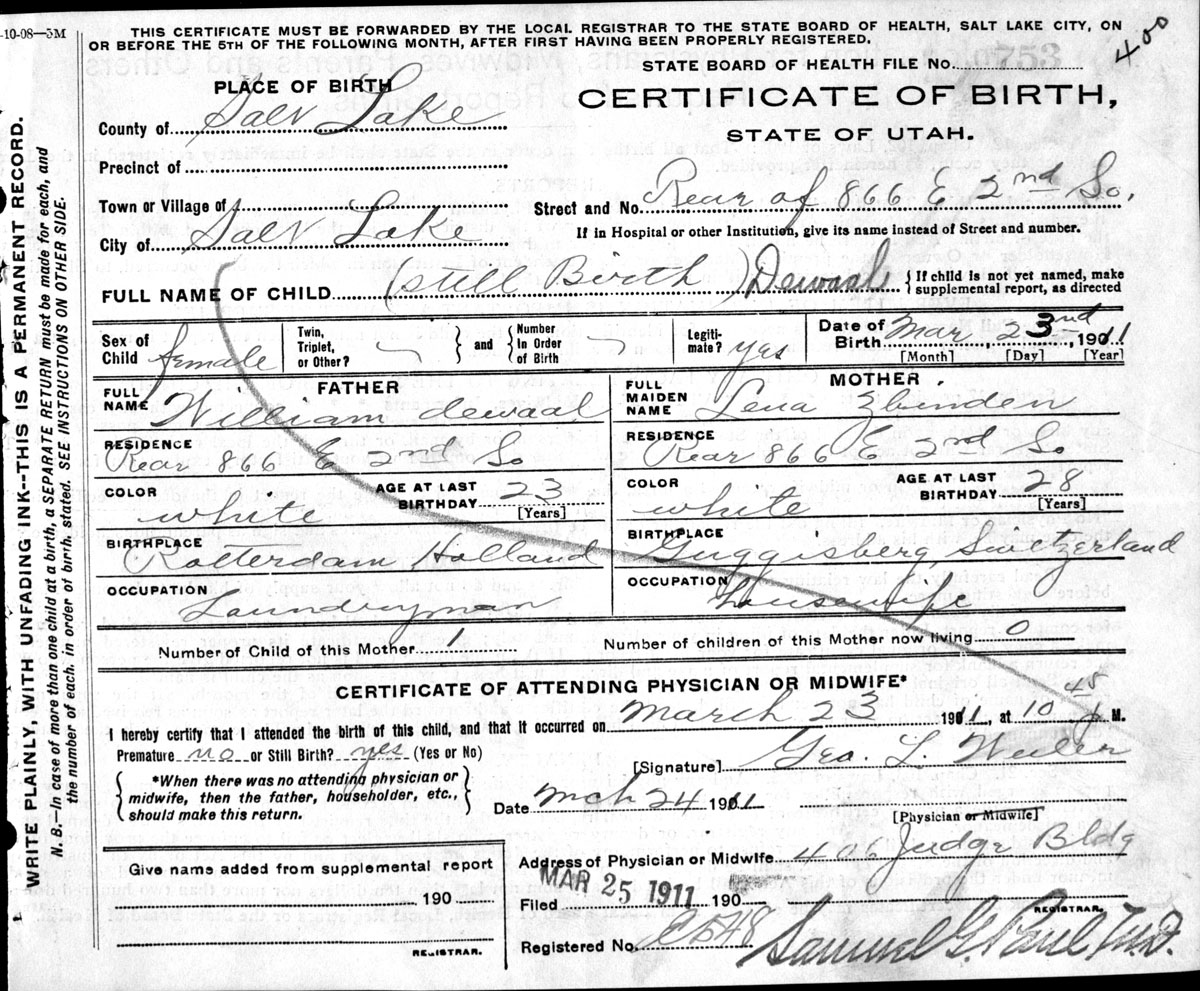 -10-08—5M
THIS CERTIFICATE MUST BE FORWARDED BY THE LOCAL REGISTRAR TO THE STATE BOARD OF HEALTH, SALT LAKE CITY, ON
OR BEFORE THE 5TH OF THE FOLLOWING MONTH, AFTER FIRST HAVING BEEN PROPERLY REGISTERED.
400
STATE BOARD OF HEALTH FILE No.
PLACE OF BIRTH
CERTIFICATE OF BIRTH,
STATE OF UTAH.
County of Salt Lake
Precinct of
Town or Village of
Street and No. Rear of 866 E 2nd So.
City of Salt Lake
If in Hospital or other Institution, give its name instead of Street and number.
FULL NAME OF CHILD (Still Birth) Dewaal { If child is not yet named, make
supplemental report, as directed
Sex of Child female Twin, Triplet, or Other? } and { Number In Order of Birth Legiti-mate? yes Date of Birth Mar, 23nd, 1911
[Month] [Day] [Year]
FATHER MOTHER
FULL NAME William dewaal FULL MAIDEN NAME Lena Zbinden
RESIDENCE Rear 866 E 2nd So RESIDENCE Rear 866 E 2nd So
COLOR white AGE AT LAST BIRTHDAY 23 [Years] COLOR white AGE AT LAST BIRTHDAY 28 [Years]
BIRTHPLACE Rotterdam Holland BIRTHPLACE Guggisberg, Switzerland
OCCUPATION Laundryman OCCUPATION housewife
Number of Child of this Mother 1 Number of children of this Mother now living 0
CERTIFICATE OF ATTENDING PHYSICIAN OR MIDWIFE*
I hereby certify that I attended the birth of this child, and that it occurred on March 23 1911, at 10 45 M.
Premature no or Still Birth? yes (Yes or No)
[Signature] Geo. L. Weiler
{ *When there was no attending physician or
midwife, then the father, householder, etc.,
should make this return. }
Date Mch 24 1911
[Physician or Midwife]
Give name added from supplemental report
190
REGISTRAR.
Address of Physician or Midwife 406 Judge Bldg
Filed MAR 25 1911 190
REGISTRAR.
Registered No. Samuel G. Paul M.D.
WRITE PLAINLY, WITH UNFADING INK--THIS IS A PERMANENT RECORD.
N. B.—In case of more than one child at a birth, a SEPARATE RETURN must be made for each, and
the number of each. in order of birth. stated. SEE INSTRUCTIONS ON OTHER SIDE.